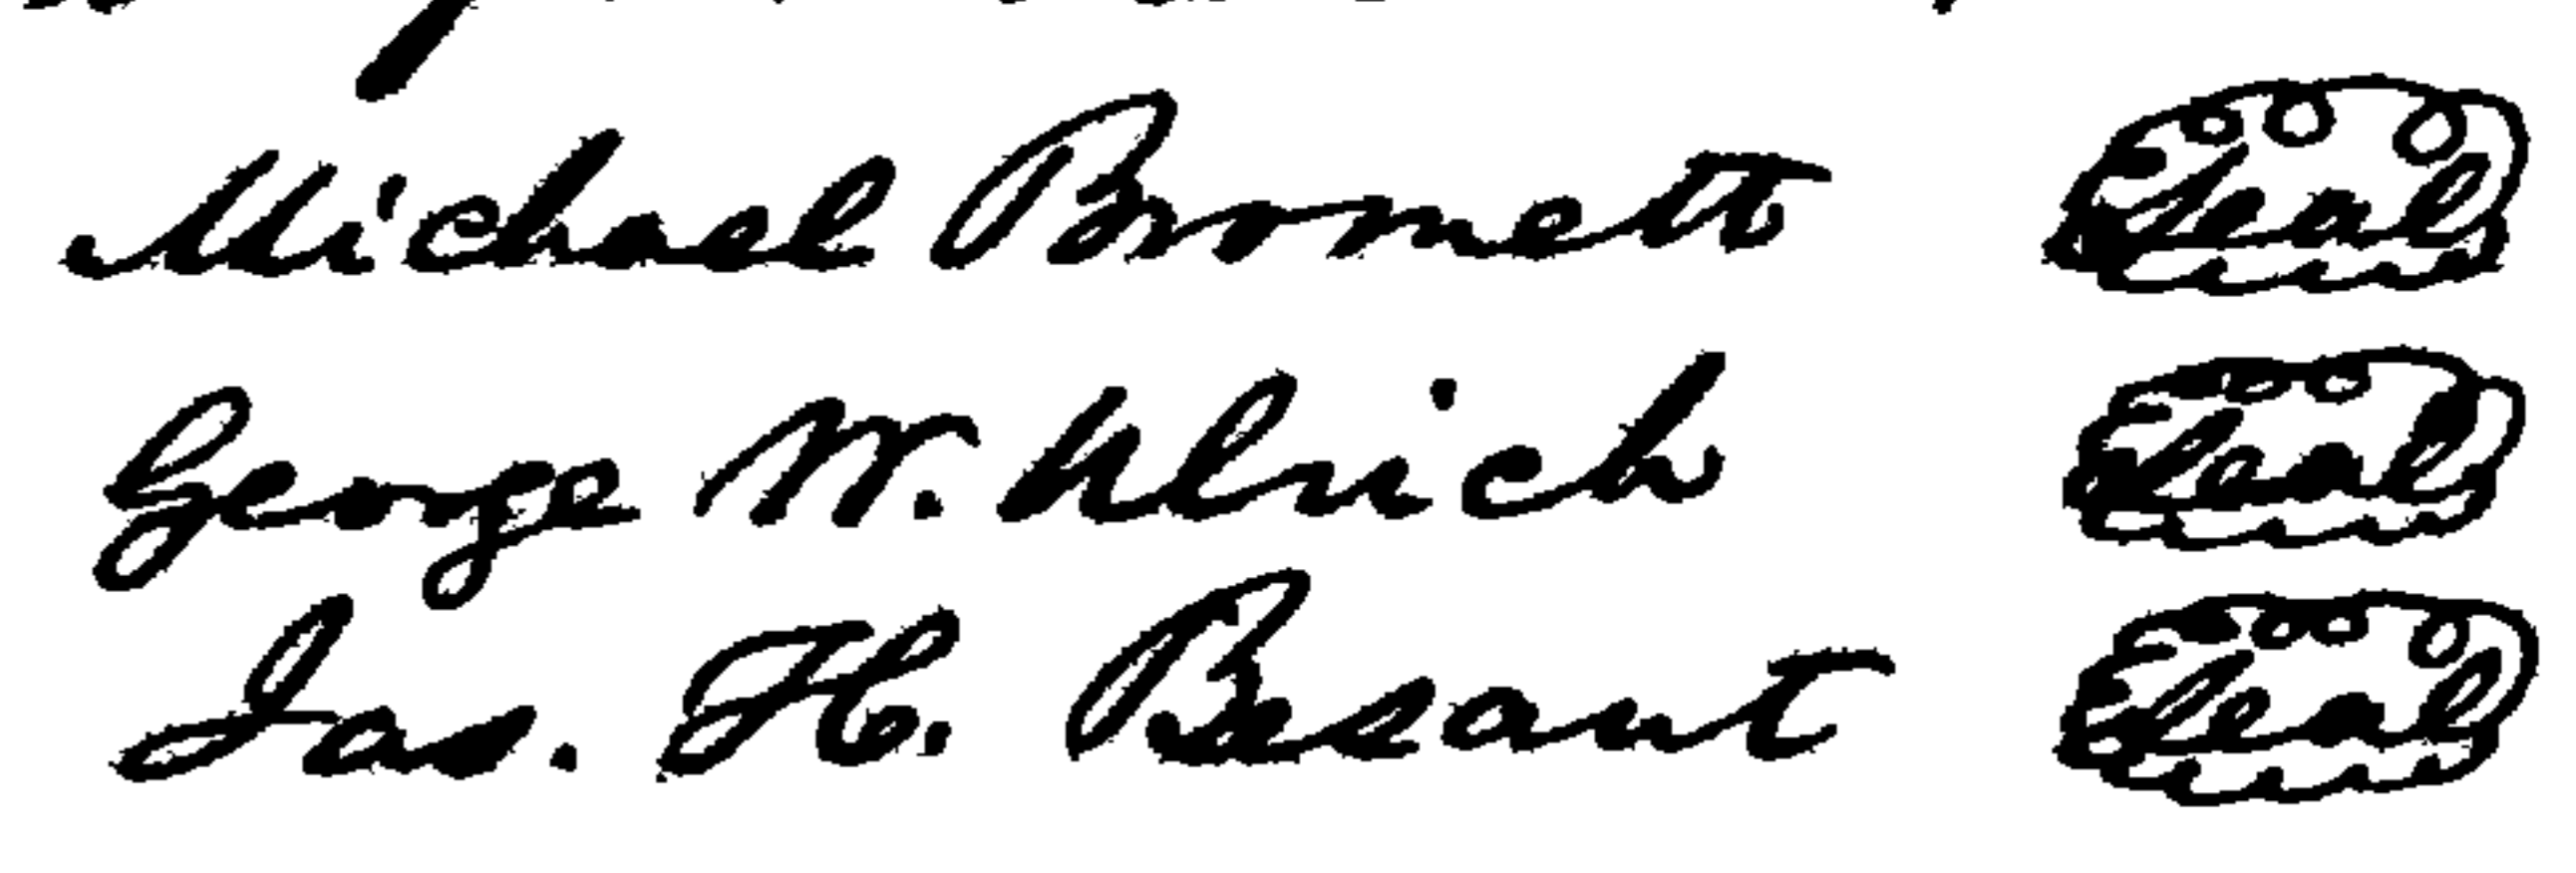 Michael Bromett Seal
George W. Ulrich Seal
Jas. H. Besant Seal